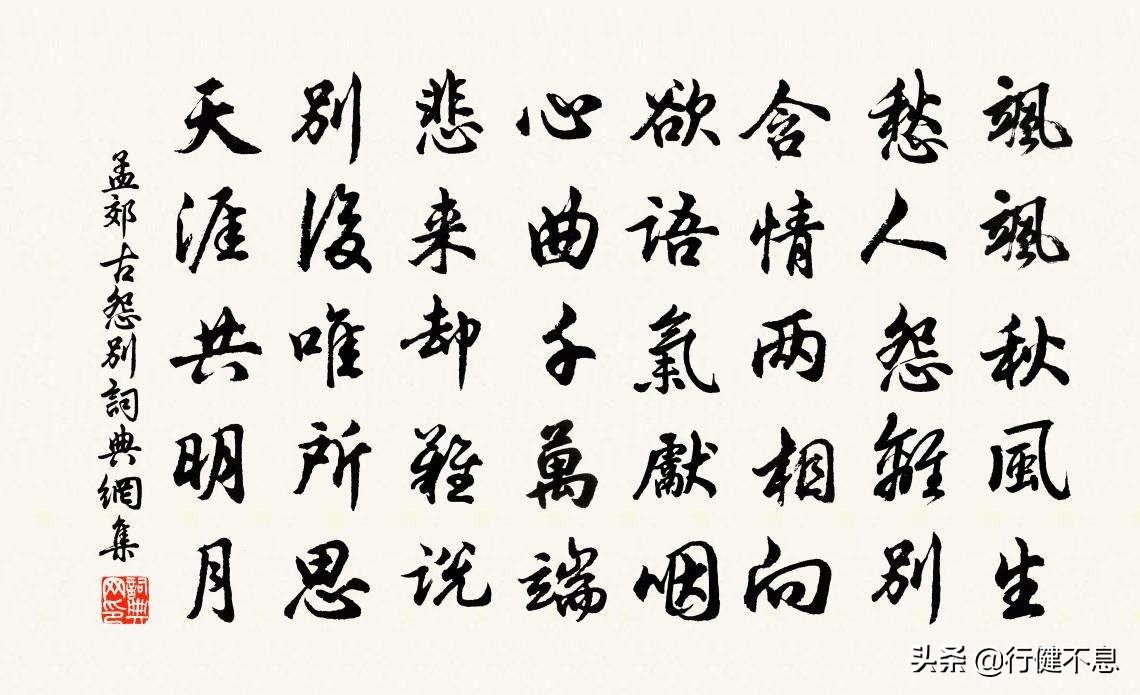 颯颯秋風生
愁人怨離別
含情两相向
欲語氣獻咽
心曲千萬端
悲来却難说
別後唯所思
天涯共明月
孟郊古怨別詞典網集
詞典网印
头条 @行健不息